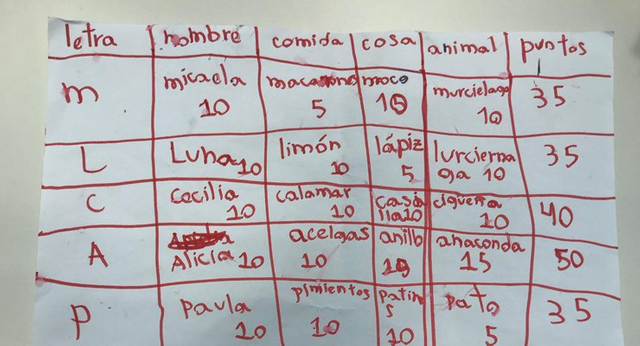 letra nombre comida cosa animal puntos
m micaela 10 macarrones 5 moco 10 murcielago 10 35
L Luna 10 limón 10 lápiz 5 lurcierna ga 10 35
C Cecilia 10 calamar 10 casti lla 10 cigueña 10 40
A Alicia 10 acelgas 10 anillo 10 anaconda 15 50
p paula 10 pimientos 10 patin 5 10 pato 5 35